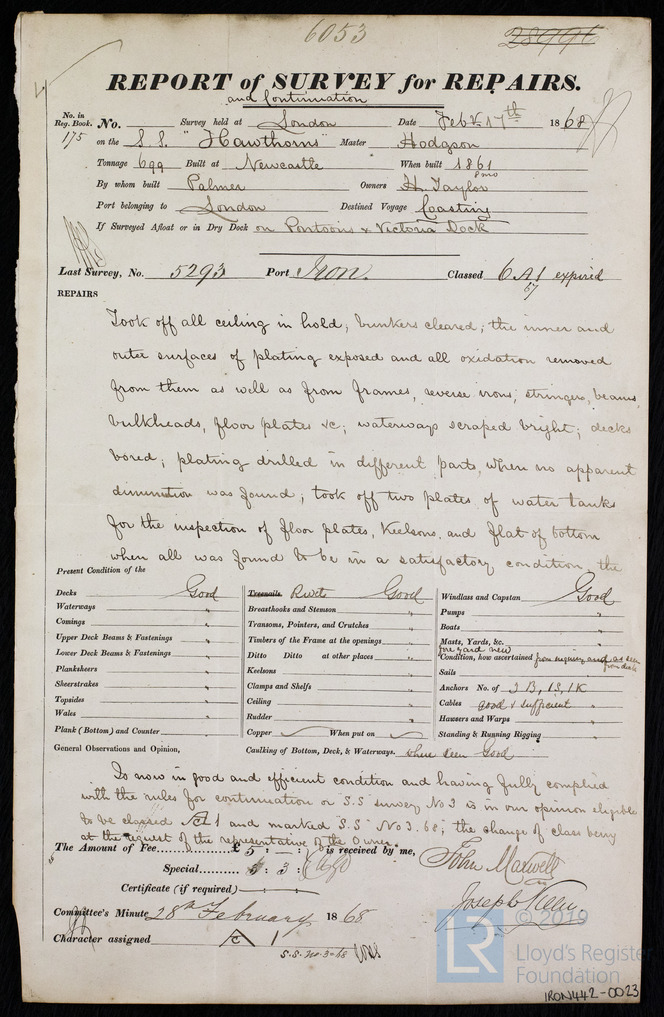 6053
28996
REPORT of SURVEY for REPAIRS.
and Continuation
No. in Reg. Book.
175
No. Survey held at London Date Feb 17th 1868
on the S.S. "Hawthorns" Master Hodgson
Tonnage 699 Built at Newcastle When built 1861
8 mo
By whom built Palmer Owners H. Taylor
Port belonging to London Destined Voyage Coasting
If Surveyed Afloat or in Dry Dock on Pontoons & Victoria Dock
Last Survey, No. 5293 Port Iron. Classed 6 A 1 expired
67
REPAIRS
Took off all ceiling in hold; bunkers cleared; the inner and
outer surfaces of plating exposed and all oxidation removed
from them as well as from frames, reverse irons, stringers, beams,
bulkheads, floor plates &c; waterways scraped bright; decks
bored; plating drilled in different parts, when no apparent
diminution was found; took off two plates of water tanks
for the inspection of floor plates, Keelsons, and flat of bottom
when all was found to be in a satisfactory condition, the
Present Condition of the
Decks Good
Waterways "
Comings "
Upper Deck Beams & Fastenings "
Lower Deck Beams & Fastenings "
Planksheers "
Sheerstrakes "
Topsides "
Wales "
Plank (Bottom) and Counter "
Treenails Rivets Good
Breasthooks and Stemson "
Transoms, Pointers, and Crutches "
Timbers of the Frame at the openings "
Ditto Ditto at other places "
Keelsons "
Clamps and Shelfs "
Ceiling "
Rudder "
Copper When put on
Caulking of Bottom, Deck, & Waterways. where seen Good
Windlass and Capstan Good
Pumps "
Boats "
Masts, Yards, &c. "
fore yard new
Condition, how ascertained from inquiry and as seen from deck
Sails "
Anchors No. of 3 B, 1 S, 1 K
Cables good & sufficient "
Hawsers and Warps "
Standing & Running Rigging "
General Observations and Opinion,
Is now in good and efficient condition and having fully complied
with the rules for continuation or S.S. survey No 3 is in our opinion eligible
to be classed A 1 and marked "S.S" No 3. 68, the change of class being
at the request of the representative of the Owner
The Amount of Fee £ 5 : — : — is received by me,
Special 3 :
Certificate (if required)
John Maxwell
Joseph
Committee's Minute 28th February 1868
Character assigned A 1
S.S. No. 3-68
© 2019
LR
Lloyd's Register
Foundation
IRON442-0023